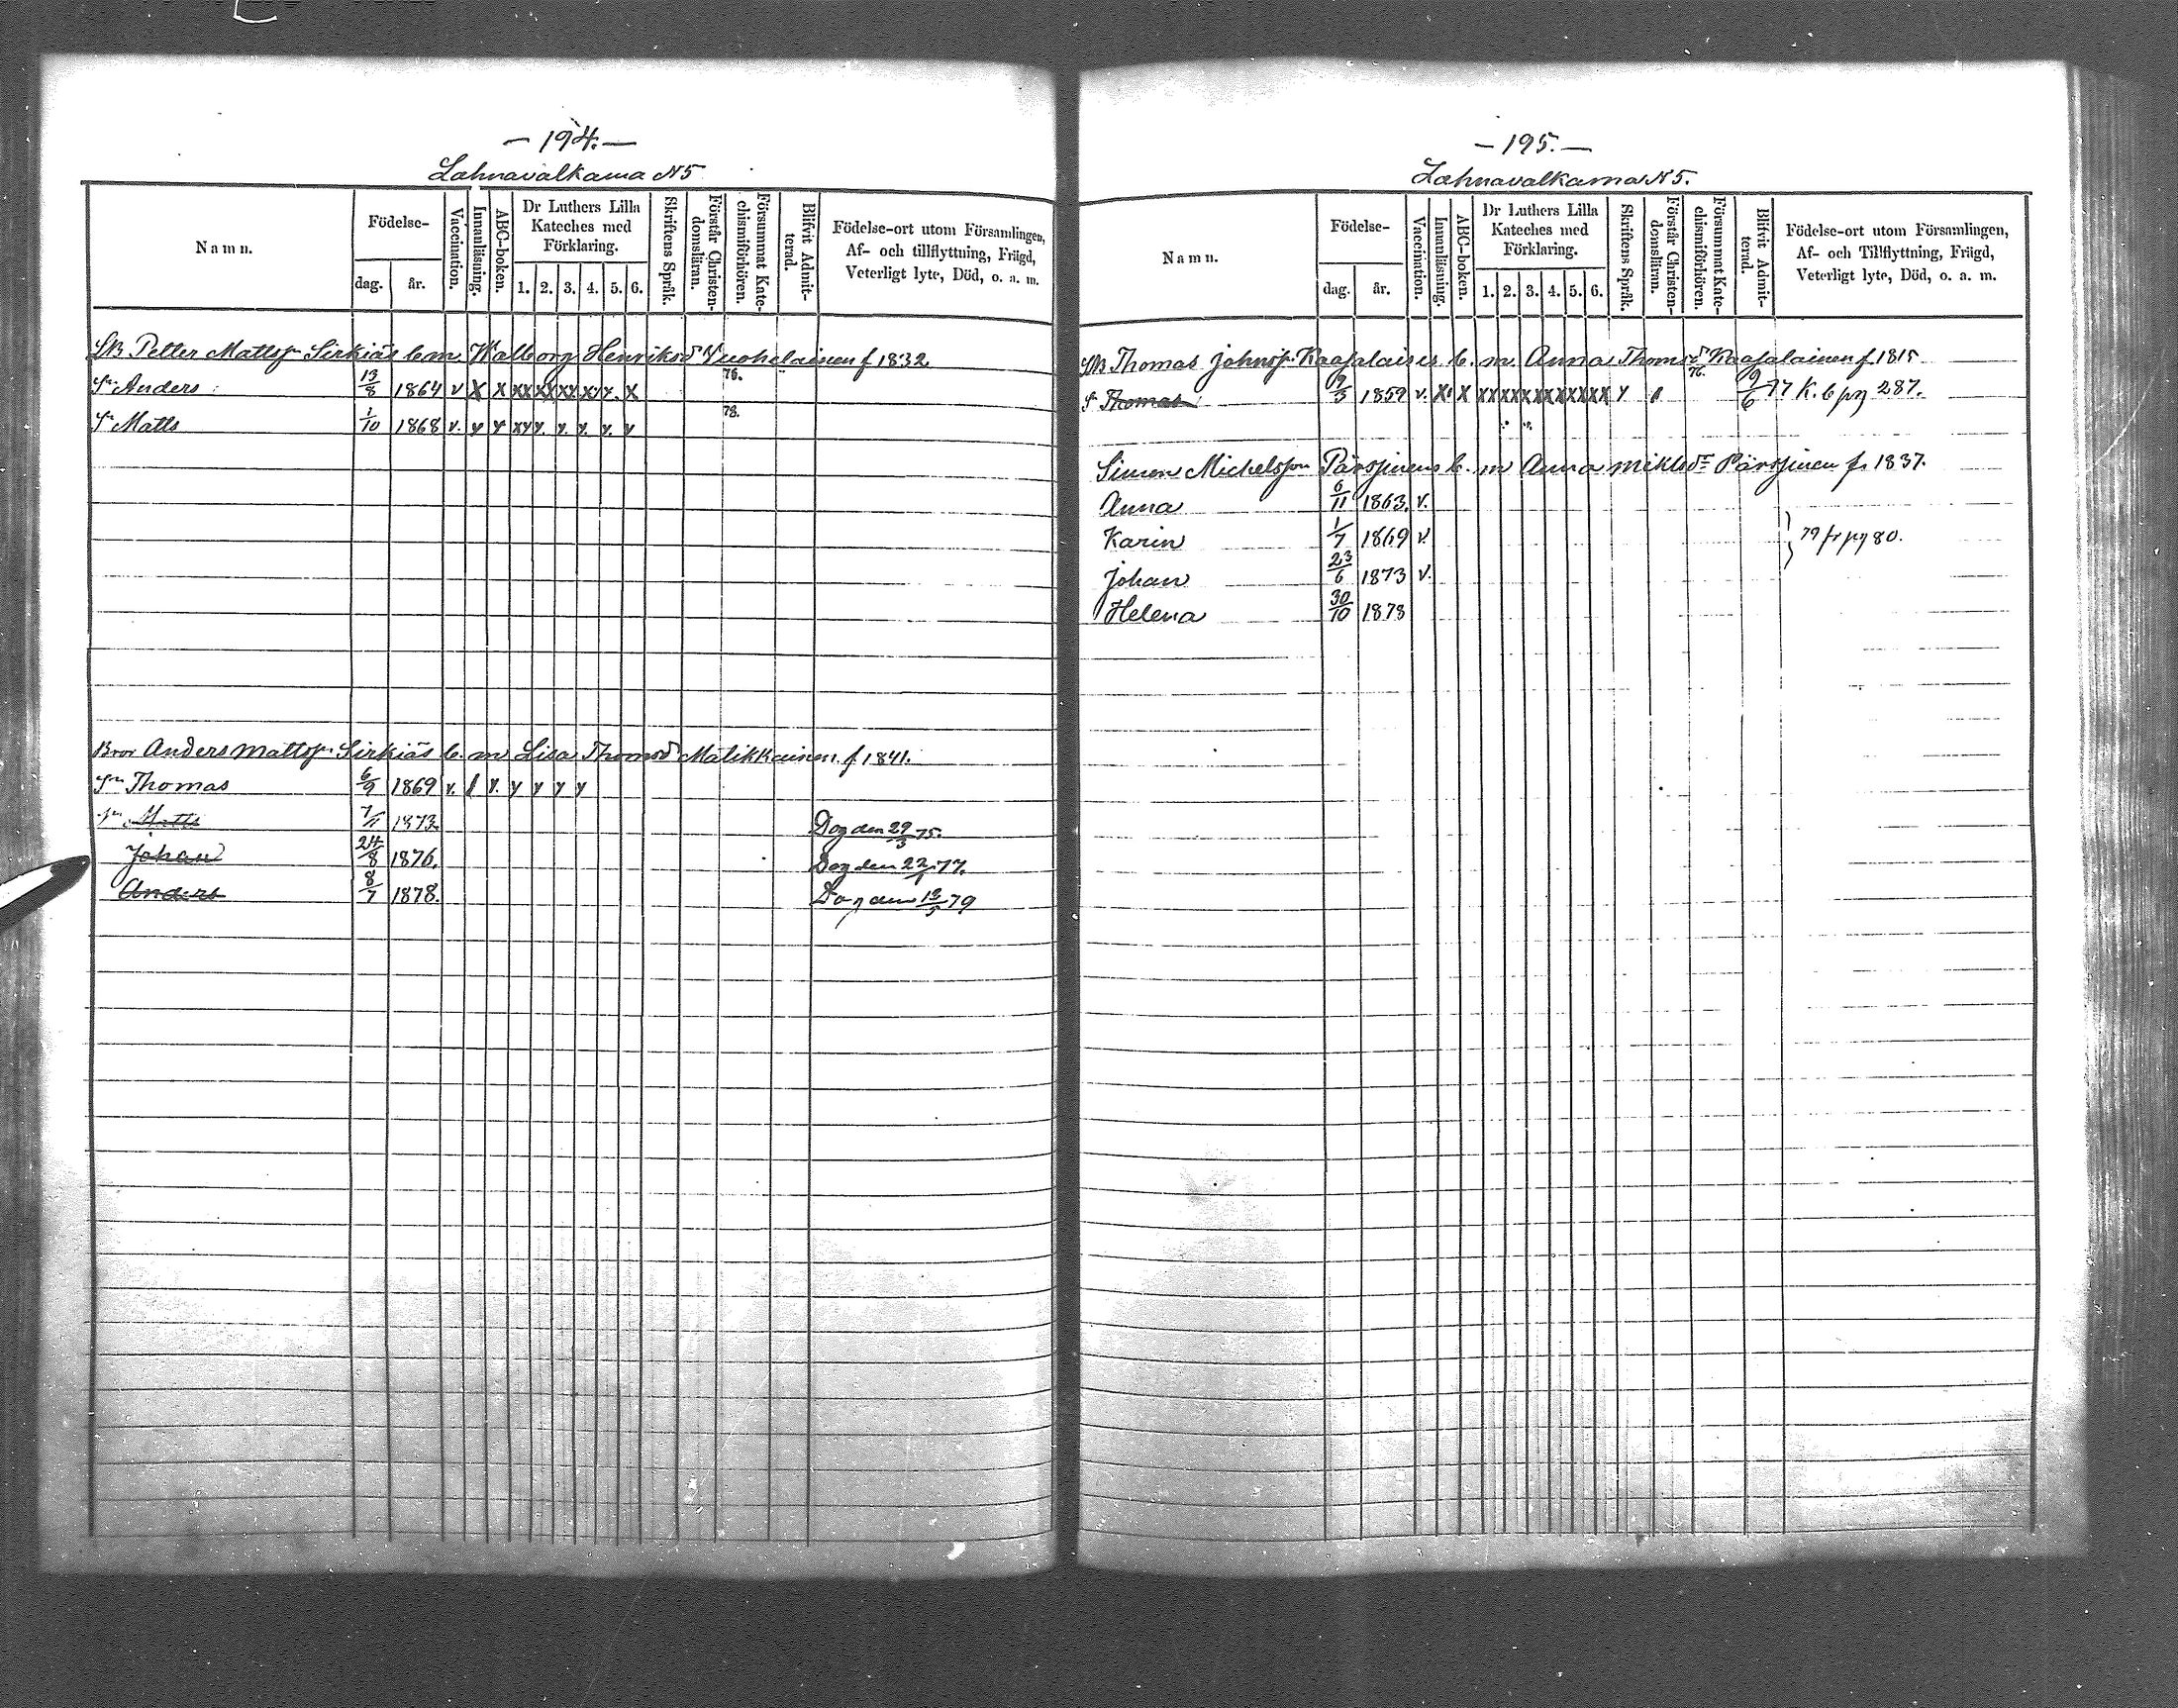 — 194. —
Lahnavalkama N5
Namn.
Födelse-
dag.
år.
Vaccination.
Innanläsning.
ABC-boken.
Dr Luthers Lilla
Kateches med
Förklaring.
1. 2. 3. 4. 5. 6.
Skriftens Språk.
Förstår Christen-
domsläran.
Försummat Kate-
chismiförhören.
Blifvit Admit-
terad.
Födelse-ort utom Församlingen,
Af- och tillflyttning, Frägd,
Veterligt lyte, Död, o. a. m.
Petter Mattsp Sirkiäs b. m Walborg Henriksd Vuohelainen f 1832
Sn Anders 13/8 1864 v X X xx xx xx x v. x 76.
Sn Matts 1/10 1868 v. y y xy y. y. y. y. y 78.
Bror Anders Mattsp Sirkiäs b. m Lisa Thomsd Matikkainen. f 1841.
Sn Thomas 6/9 1869 v. / v. y y y y
Sn Matts 7/11 1873 Dog den 29/3 75.
Johan 24/8 1876. Dog den 22/1 77.
Anders 8/7 1878. Dog den 12/5 79
— 195. —
Lahnavalkama N5.
Namn.
Födelse-
dag.
år.
Vaccination.
Innanläsning.
ABC-boken.
Dr Luthers Lilla
Kateches med
Förklaring.
1. 2. 3. 4. 5. 6.
Skriftens Språk.
Förstår Christen-
domsläran.
Försummat Kate-
chismiförhören.
Blifvit Admit-
terad.
Födelse-ort utom Församlingen,
Af- och Tillflyttning, Frägd,
Veterligt lyte, Död, o. a. m.
Thomas Johnsp. Kaasalaises b. m. Anna Thomsd Kaasalainen f. 1815
Sn Thomas 9/3 1859 v. X X xx xx xx xx xx xx y / 76. 9/6 77 K. b pg 287.
Simon Michelsson Pärssinens b. m Anna Miklsdr Pärssinen f. 1837.
Anna 6/11 1863. v.
Karin 1/7 1869 v. 79 fr pg 80.
Johan 23/6 1873 v.
Helena 30/10 1878